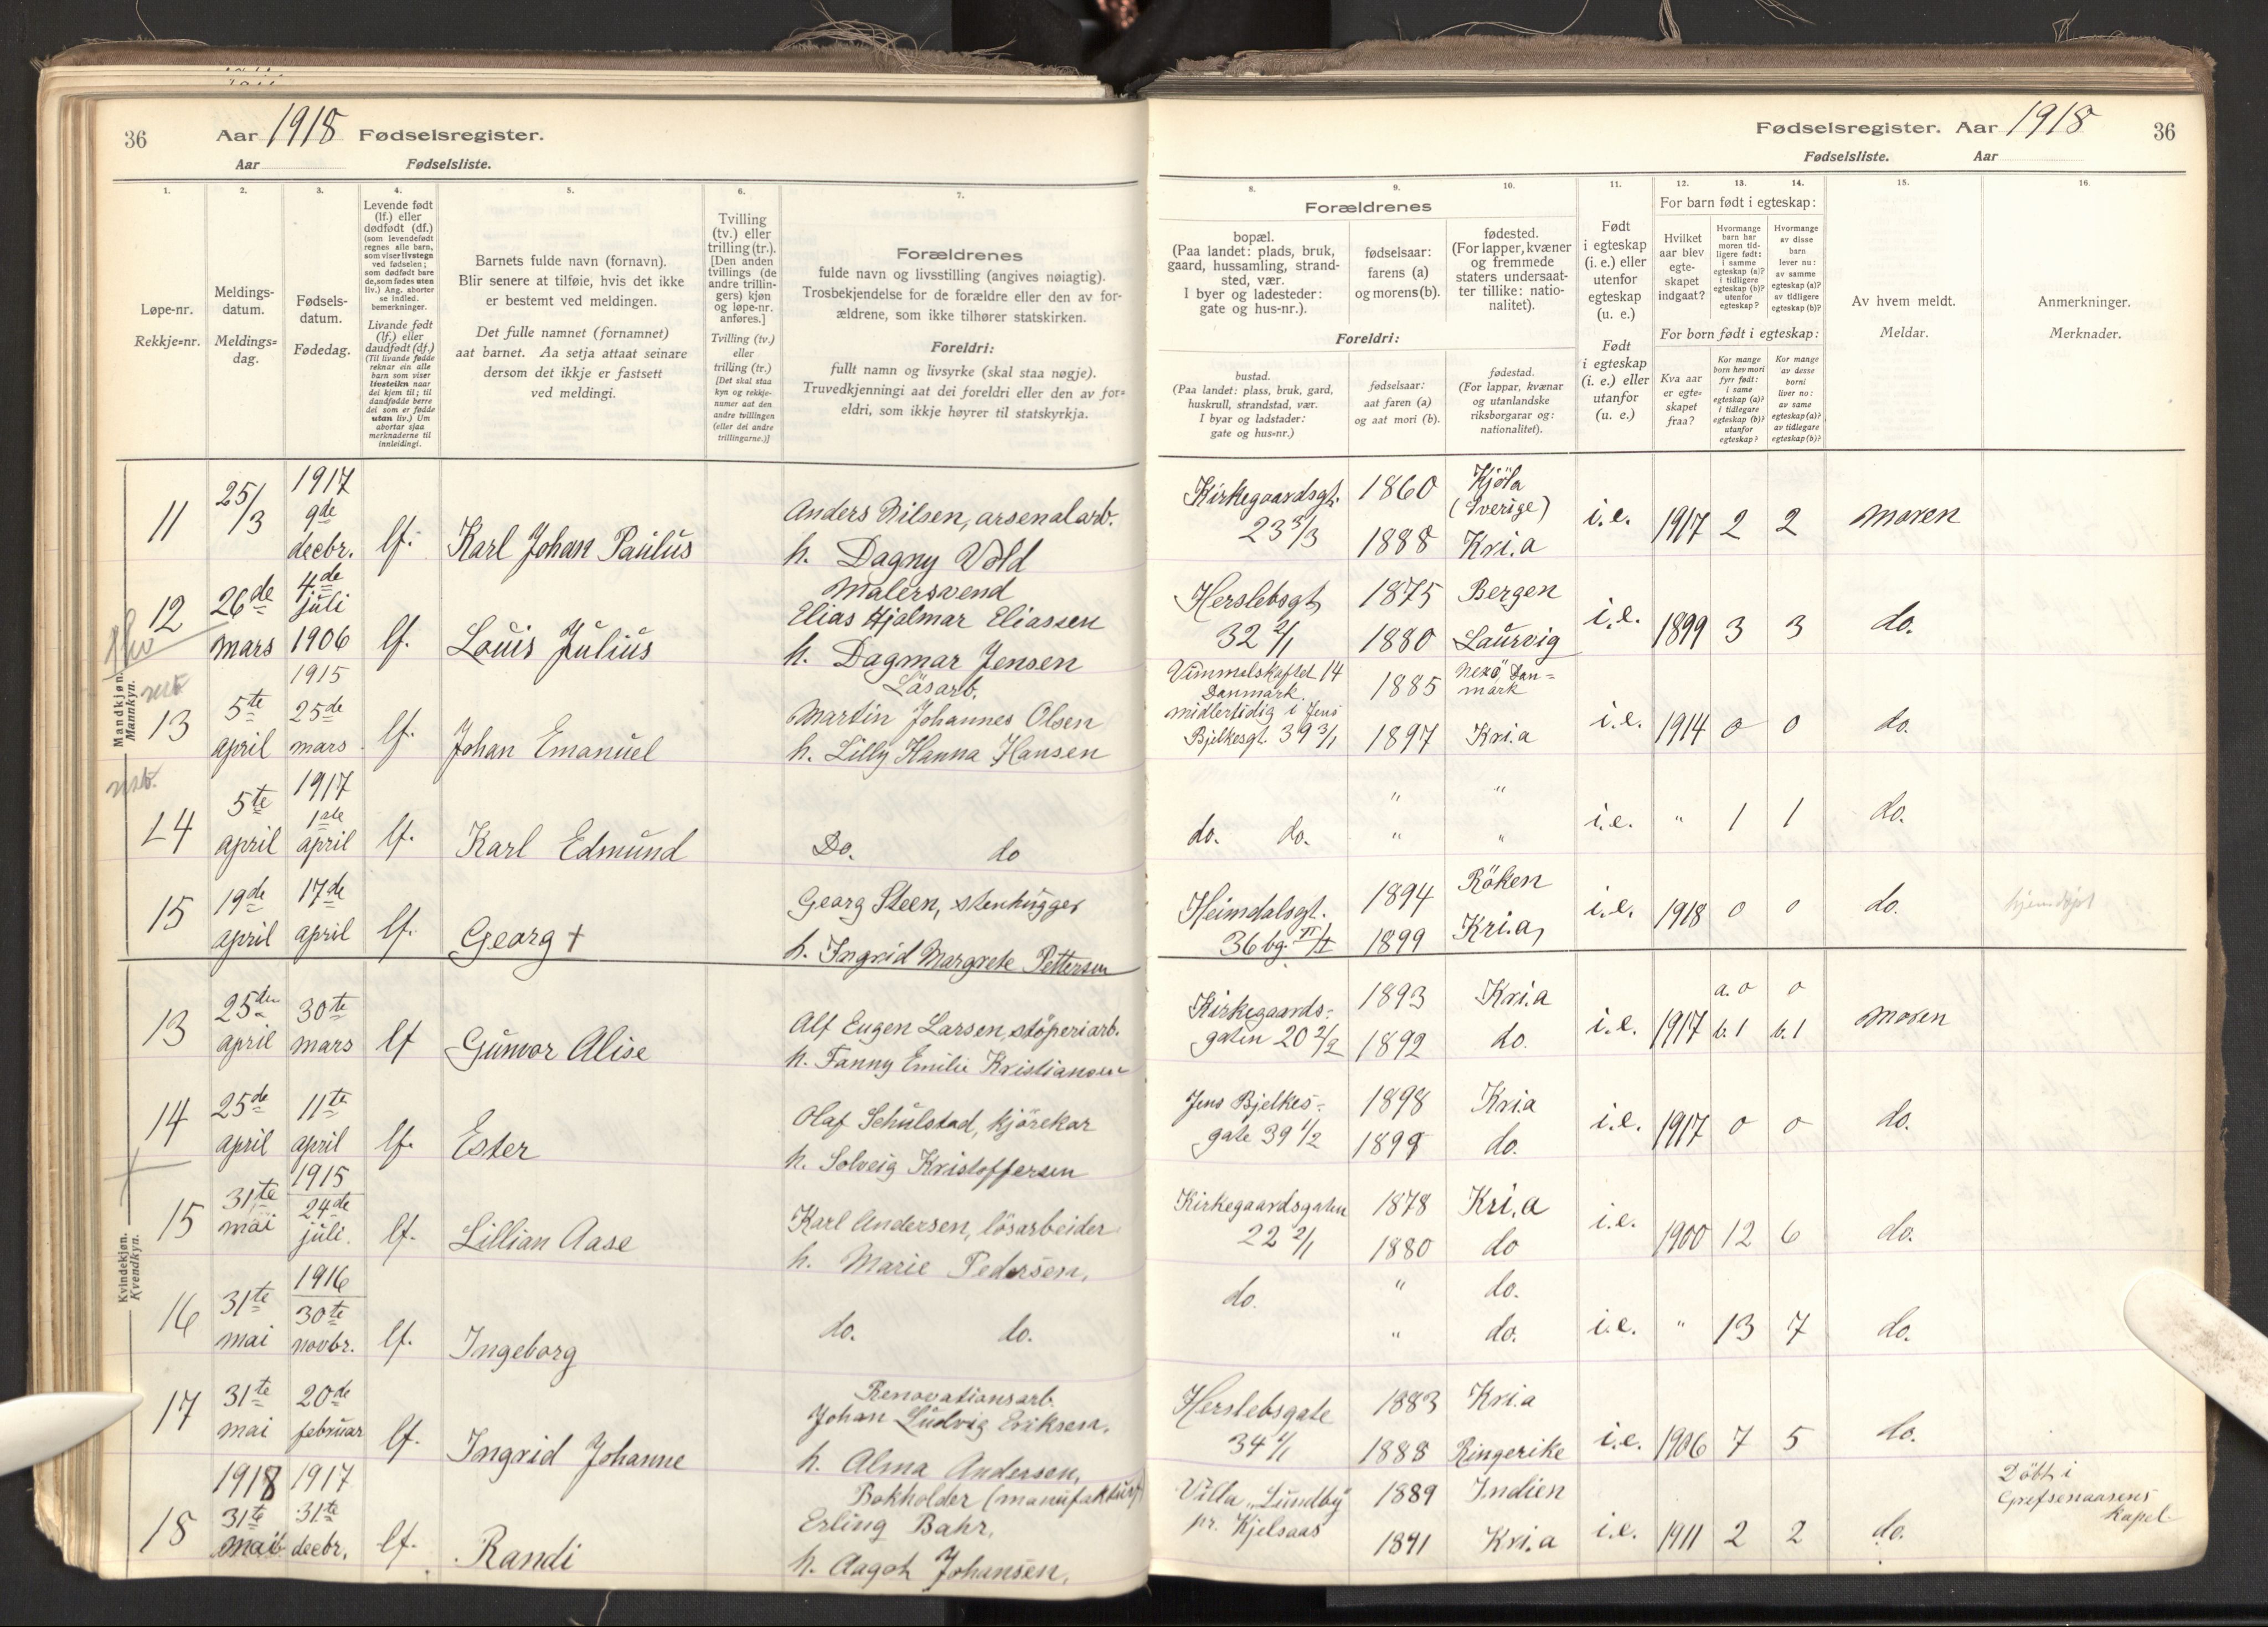 36 Aar 1918 Fødselsregister.
Aar Fødselsliste.
1. 2. 3. 4. 5. 6. 7.
Løpe-nr.
Rekkje=nr.
Meldings-
datum.
Meldings=
dag.
Fødsels-
datum.
Fødedag.
Levende født
(lf.) eller
dødfødt (df.)
(som levendefødt
regnes alle barn,
som viser livstegn
ved fødselen;
som dødfødt bare
de, som fødes uten
liv.) Ang. aborter
se indled.
bemerkninger.
Livande født
(lf.) eller
daudfødt (df.)
(Til livande fødde
reknar ein alle
barn som viser
livsteikn naar
dei kjem til; til
daudfødde berre
dei som er fødde
utan liv.) Um
abortar sjaa
merknaderne til
innleidingi.
Barnets fulde navn (fornavn).
Blir senere at tilføie, hvis det ikke
er bestemt ved meldingen.
Det fulle namnet (fornamnet)
aat barnet. Aa setja attaat seinare
dersom det ikkje er fastsett
ved meldingi.
Tvilling
(tv.) eller
trilling (tr.).
[Den anden
tvillings (de
andre trillin-
gers) kjøn
og løpe-nr.
anføres.]
Tvilling (tv.)
eller
trilling (tr.)
[Det skal staa
kyn og rekkje-
numer aat den
andre tvillingen
(eller dei andre
trillingarne.)]
Forældrenes
fulde navn og livsstilling (angives nøiagtig).
Trosbekjendelse for de forældre eller den av for-
ældrene, som ikke tilhører statskirken.
Foreldri:
fullt namn og livsyrke (skal staa nøgje).
Truvedkjenningi aat dei foreldri eller den av for=
eldri, som ikkje høyrer til statskyrkja.
Mandkjøn.
Mannkyn.
11 25/3 1917 9de decbr. lf. Karl Johan Paulus
Anders Nilsen, arsenalarb.
h. Dagny Vold
12 26de mars 4de juli 1906 lf. Louis Julius
Malersvend
Elias Hjalmar Eliassen
h. Dagmar Jensen
13 5te april 1915 25de mars lf. Johan Emanuel
Løsarb.
Martin Johannes Olsen
h. Lilly Hanna Hansen
14 5te april 1917 1ste april lf. Karl Edmund
Do. do
15 19de april 17de april lf. Georg +
Georg Steen, stenhugger
h. Ingrid Margrete Pettersen
Kvindekjøn.
Kvendkyn.
13 25de april 30te mars lf Gunvor Alise
Alf Eugen Larsen, støperiarb.
h. Fanny Emilie Kristiansen
14 25de april 11te april lf. Ester
Olaf Schulstad, kjørekar
h. Solveig Kristoffersen
15 31te mai 1915 24de juli. lf. Lillian Aase
Karl Andersen, løsarbeider
h. Marie Pedersen,
16 31te mai 1916 30te novbr. lf. Ingeborg
do. do.
17 31te mai 20de februar lf. Ingrid Johanne
Renovationsarb.
Johan Ludvig Eriksen,
h. Alma Andersen,
18 1918 31te mai 1917 31te decbr. lf. Randi
Bokholder (manufaktur)
Erling Bahr,
h. Aagot Johansen,
Fødselsregister. Aar 1918 36
Fødselsliste. Aar
8. 9. 10. 11. 12. 13. 14. 15. 16.
Forældrenes
bopæl.
(Paa landet: plads, bruk,
gaard, hussamling, strand-
sted, vær.
I byer og ladesteder:
gate og hus-nr.).
fødselsaar:
farens (a)
og morens (b).
fødested.
(For lapper, kvæner
og fremmede
staters undersaat-
ter tillike: natio-
nalitet).
Foreldri:
bustad.
(Paa landet: plass, bruk, gard,
huskrull, strandstad, vær.
I byar og ladstader:
gate og hus=nr.)
fødselsaar:
aat faren (a)
og aat mori (b).
fødestad.
(For lappar, kvænar
og utanlandske
riksborgarar og:
nationalitet).
Født
i egteskap
(i. e.) eller
utenfor
egteskap
(u. e.)
Født
i egteskap
(i. e.) eller
utanfor
(u. e.)
For barn født i egteskap:
Hvilket
aar blev
egte-
skapet
indgaat?
Hvormange
barn har
moren tid-
ligere født:
i samme
egteskap (a)?
i tidligere
egteskap (b)?
utenfor
egteskap?
Hvormange
av disse
barn
lever nu:
av samme
egteskap (a)?
av tidligere
egteskap (b)?
For born født i egteskap:
Kva aar
er egte=
skapet
fraa?
Kor mange
born hev mori
fyrr født:
i same
egteskap (a)?
i tidlegare
egteskap (b)?
utanfor
egteskap?
Kor mange
av desse
borni
liver no:
av same
egteskap (a)?
av tidlegare
egteskap (b)?
Av hvem meldt.
Meldar.
Anmerkninger.
Merknader.
Kirkegaardsgt. 1860 Kjöla
(Sverige)
23 3/3 1888 Kri.a i.e. 1917 2 2 moren
Herslebsgt. 1875 Bergen
32 2/1 1880 Laurvig i.e. 1899 3 3 do.
Vimmelskaftet 14
Danmark. 1885 Nexö, Dan=
mark
midlertidig i Jens
Bjelkesgt. 39 3/1 1897 Kri.a i.e. 1914 0 0 do.
" "
do. do. " " i.e. " 1 1 do.
Heimdalsgt. 1894 Röken
36 bg. 1899 Kri.a, i.e. 1918 0 0 do. hjemdøpt
Kirkegaards= 1893 Kri.a a. 0 0
gaten 20 2/2 1892 do. i.e. 1917 b. 1 b. 1 moren
Jens Bjelkes= 1898 Kria
gate 39 1/2 1899 do. i.e. 1917 0 0 do.
Kirkegaardsgaten 1878 Kri.a
22 2/1 1880 do i.e. 1900 12 6 do.
do. " do.
" do. i.e. " 13 7 do.
Herslebsgate 1883 Kri.a
34 1888 Ringerike i.e. 1906 7 5 do.
Villa "Lundby" 1889 Indien
pr. Kjelsaas 1891 Kri.a i.e. 1911 2 2 do.
Döbt i
Grefsenaasens
Kapel